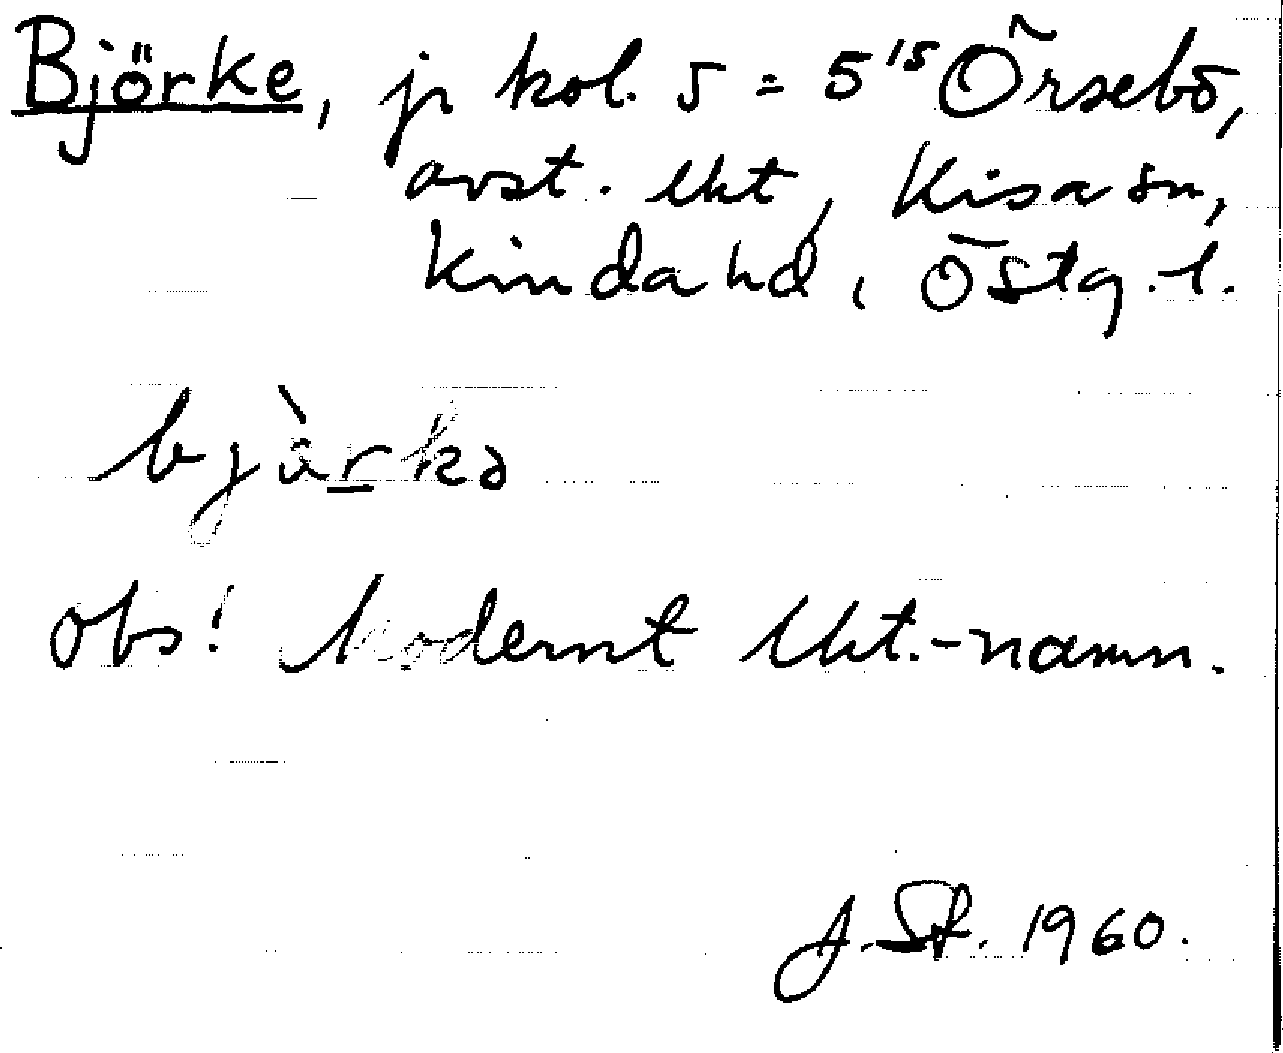 Björke, jr kol. 5 = 5¹⁵ Örsebo,
avst. lht, Kisa sn,
Kinda hd, Östg. l.
bjàrkə
Obs! Modernt lht.-namn.
J. St. 1960.